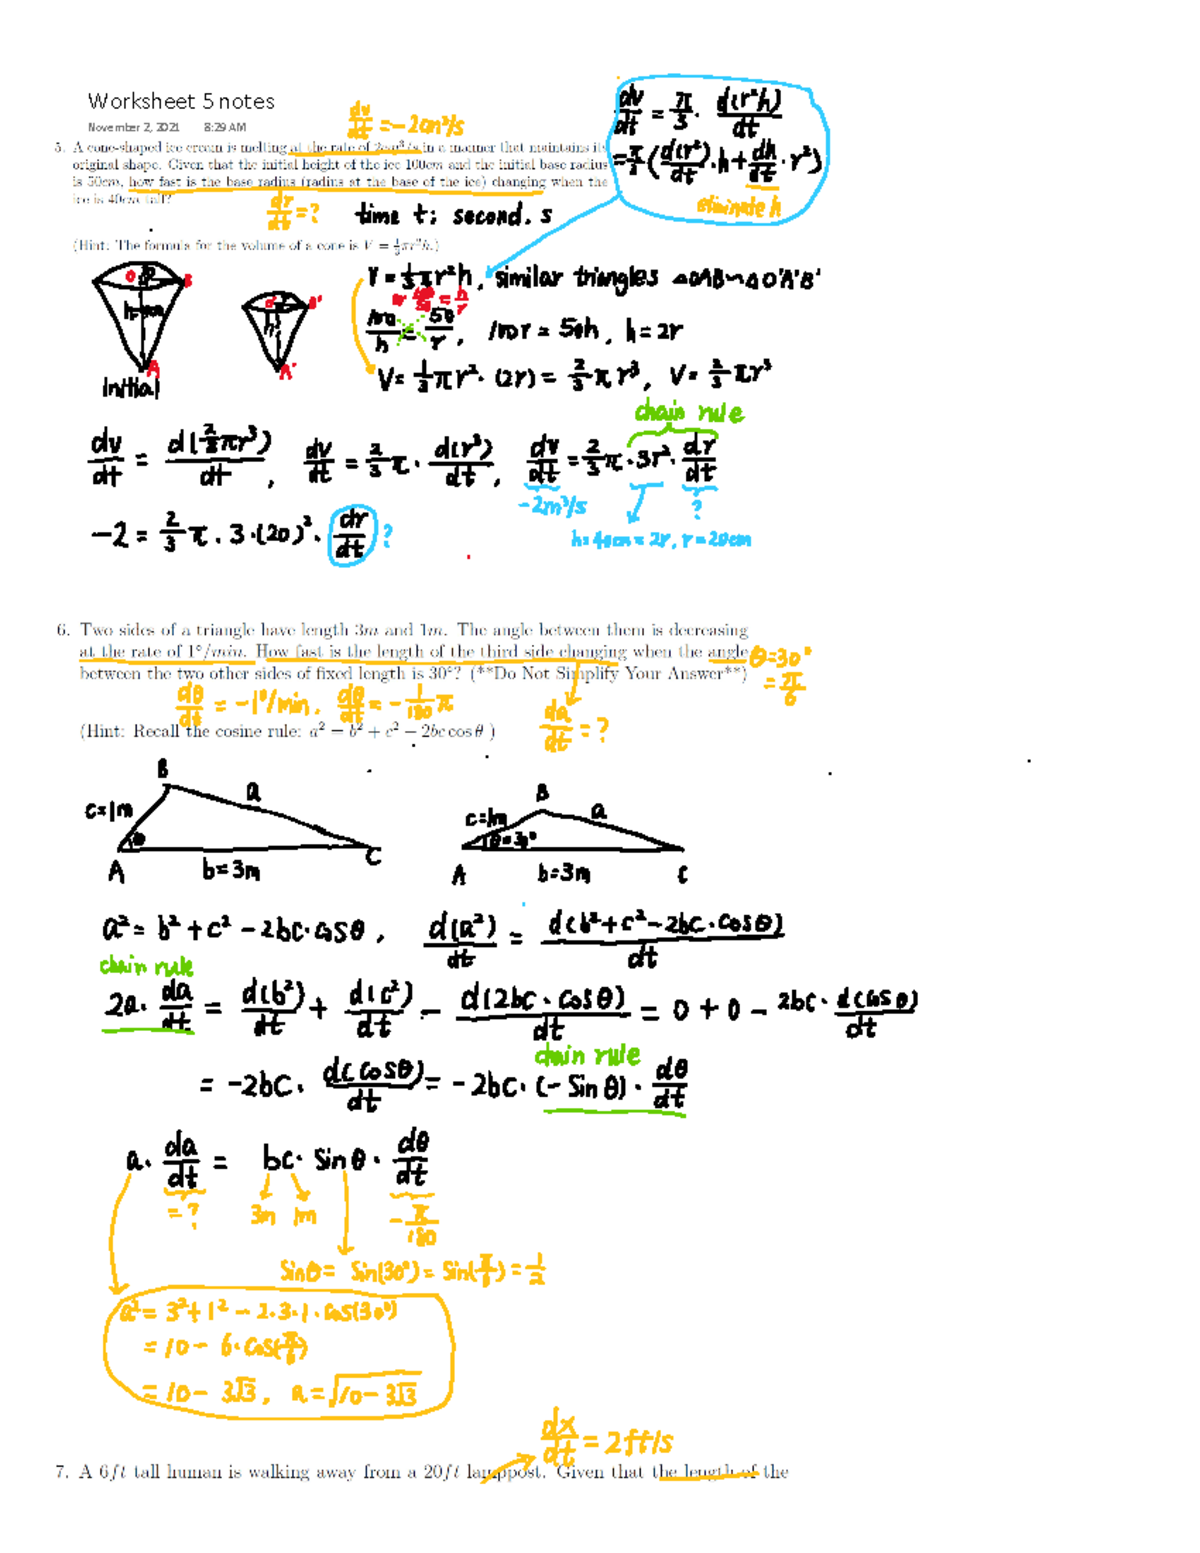 Worksheet 5 notes
November 2, 2021 8:29 AM
dv/dt = -2cm³/s
5. A cone-shaped ice cream is melting at the rate of 2cm³/s in a manner that maintains its
original shape. Given that the initial height of the ice 100cm and the initial base radius
is 50cm, how fast is the base radius (radius at the base of the ice) changing when the
ice is 40cm tall?
dr/dt = ? time t: second. s
dv/dt = π/3 · d(r²h)/dt
= π/3 (d(r²)/dt · h + dh/dt · r²)
eliminate h
(Hint: The formula for the volume of a cone is V = 1/3 πr²h.)
V = 1/3 πr²h, similar triangles △OAB ~ △O'A'B'
O B A
O' B' A'
h
initial
or 100/50 = h/r
100/h = 50/r, 100r = 50h, h = 2r
V = 1/3 πr² · (2r) = 2/3 πr³, V = 2/3 πr³
chain rule
dv/dt = d(2/3 πr³)/dt, dv/dt = 2/3 π · d(r³)/dt, dv/dt = 2/3 π · 3r² · dr/dt
-2m³/s ?
h = 40cm = 2r, r = 20cm
-2 = 2/3 π · 3 · (20)² · dr/dt ?
6. Two sides of a triangle have length 3m and 1m. The angle between them is decreasing
at the rate of 1°/min. How fast is the length of the third side changing when the angle
between the two other sides of fixed length is 30°? (**Do Not Simplify Your Answer**)
θ = 30°
= π/6
dθ/dt = -1°/min, dθ/dt = -1/180 π
da/dt = ?
(Hint: Recall the cosine rule: a² = b² + c² − 2bc cos θ )
B a c=1m θ A b=3m C
B a c=1m θ=30° A b=3m C
a² = b² + c² - 2bc · cosθ, d(a²)/dt = d(b² + c² - 2bc · cosθ)/dt
chain rule
2a · da/dt = d(b²)/dt + d(c²)/dt - d(2bc · cosθ)/dt = 0 + 0 - 2bc · d(cosθ)/dt
chain rule
= -2bc · d(cosθ)/dt = -2bc · (-sinθ) · dθ/dt
a · da/dt = bc · sinθ · dθ/dt
= ? 3m 1m -π/180
sinθ = sin(30°) = sin(π/6) = 1/2
a² = 3² + 1² - 2·3·1·cos(30°)
= 10 - 6·cos(π/6)
= 10 - 3√3, a = √10-3√3
dx/dt = 2ft/s
7. A 6ft tall human is walking away from a 20ft lamppost. Given that the length of the